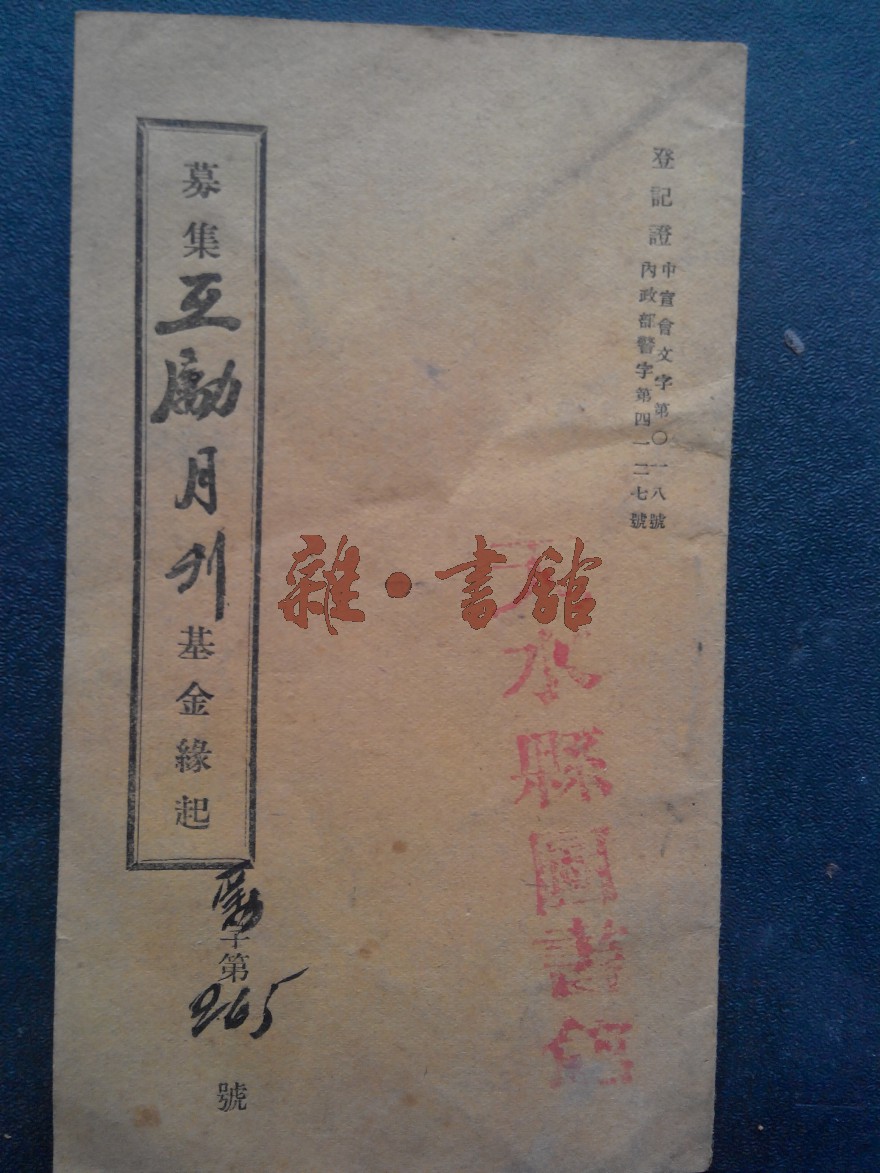 登記證
中宣會文字第〇一八號
內政部警字第四一二七號
天水縣圖書館
雜·書館
募集互勵月刊基金緣起
勵字第265號